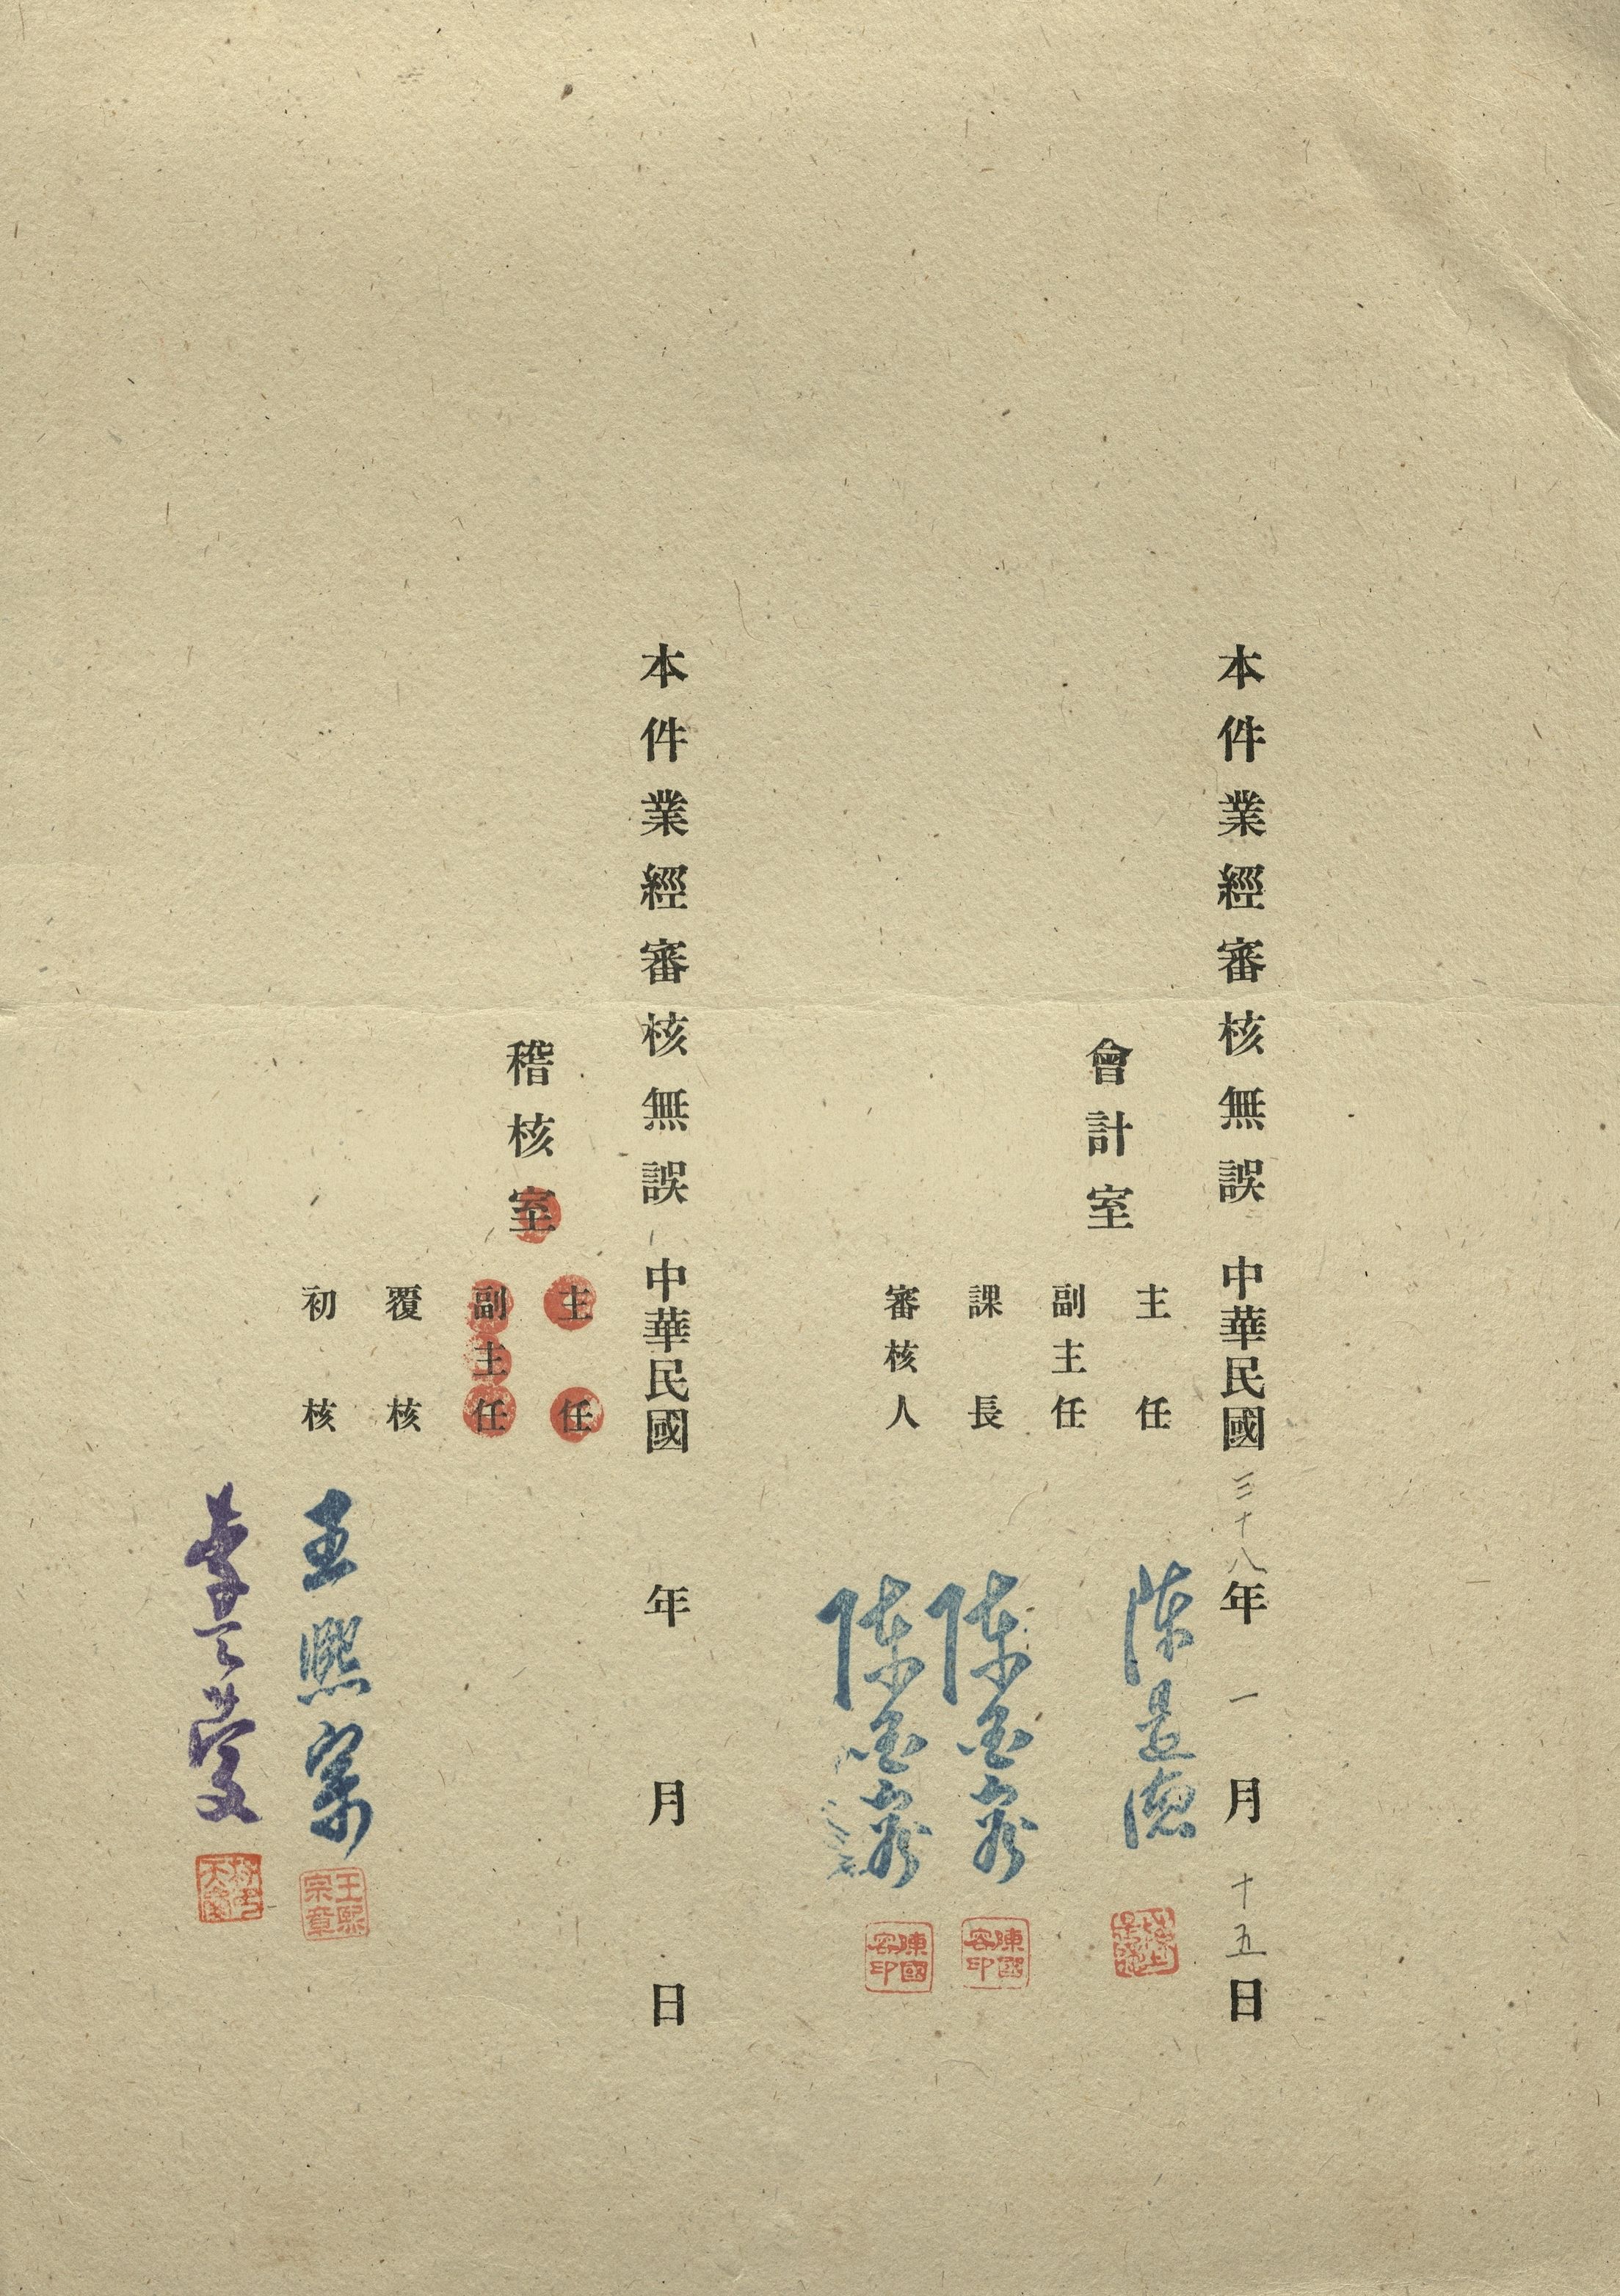 本件業經審核無誤 中華民國三十八年一月十五日
會計室
主任
副主任
課長
審核人
陳國容印
陳國容印
本件業經審核無誤 中華民國 年 月 日
稽核室
主任
副主任
覆核
初核
王熙宗
王熙宗章